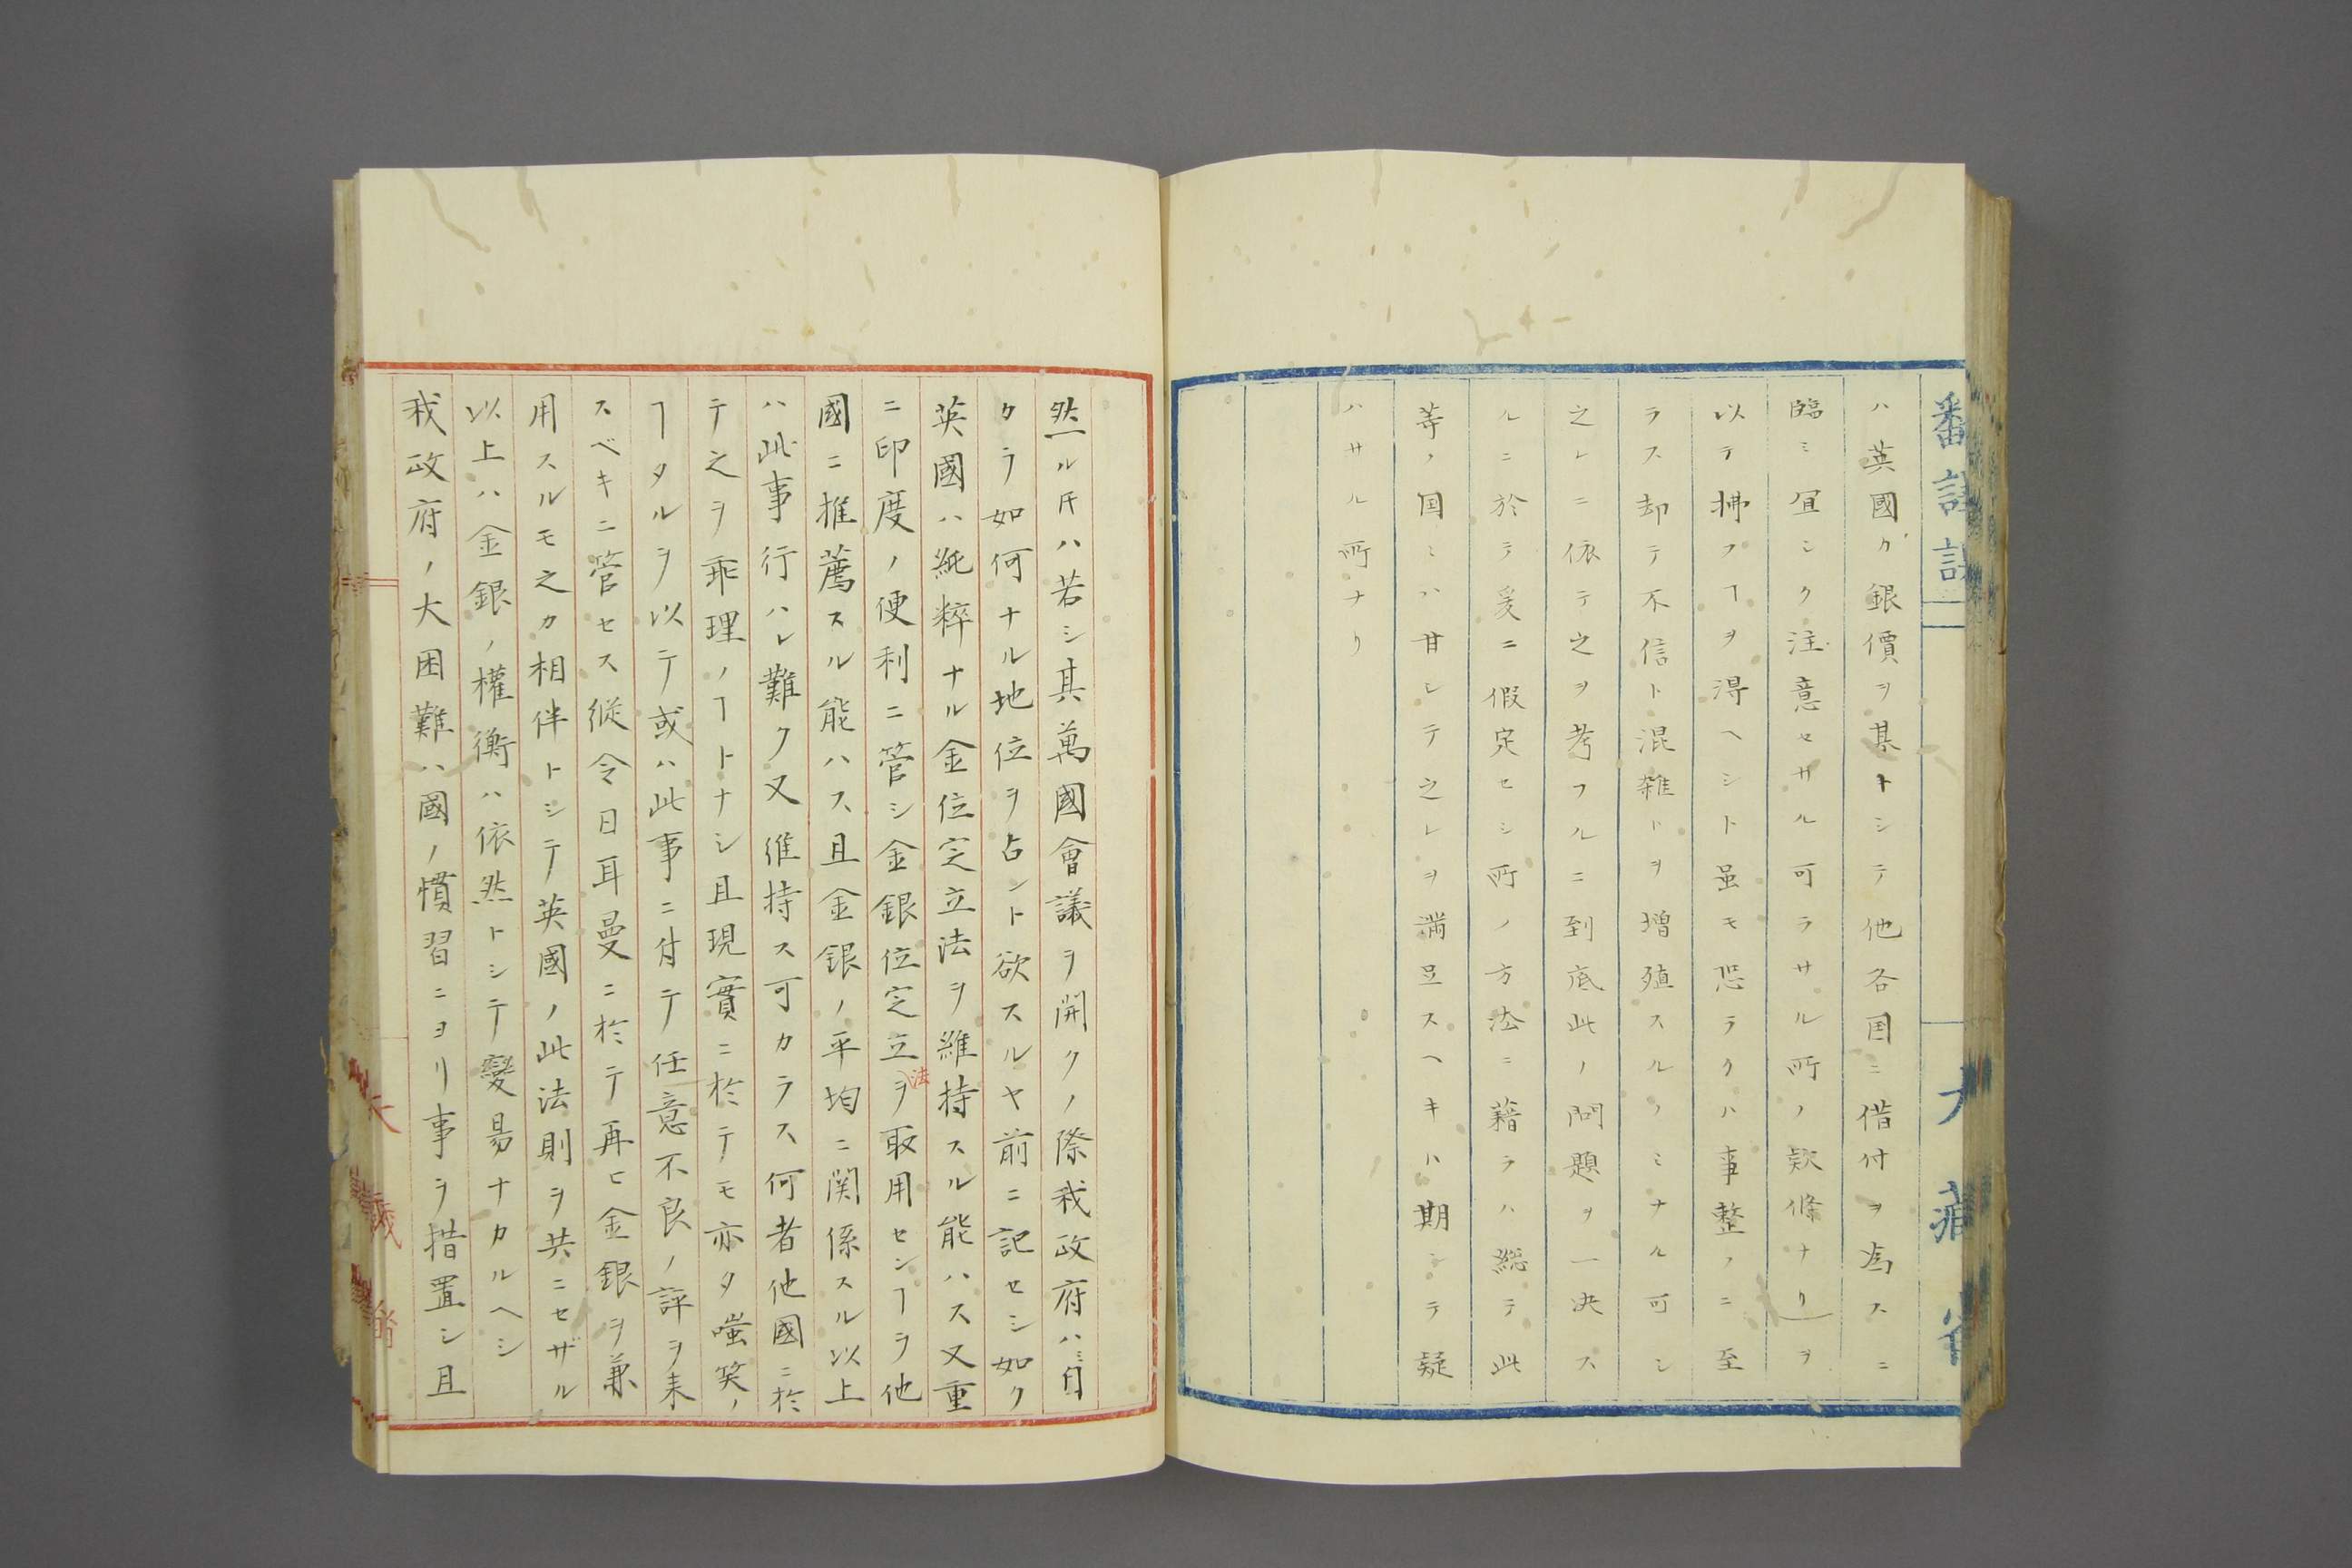 ハ英國ガ銀價ヲ基トシテ他各国ニ借付ヲ為スニ
臨ミ宜シク注意セサル可ラサル所ノ欵條ナリヲ
以テ拂フヿヲ得ヘシト虽モ恐ラクハ事整ノニ至
ラス却テ不信ト混雜トヲ増殖スルノミナル可シ
之レニ依テ之ヲ考フルニ到底此ノ問題ヲ一决ス
ルニ於テ爰ニ假定セシ所ノ方法ニ藉ラハ総テ此
等ノ国ミハ甘シテ之レヲ満足スヘキハ期シテ疑
ハサル所ナリ
然ル𪜈ハ若シ其萬國會議ヲ開クノ際我政府ハ
クラ如何ナル地位ヲ占ント欲スルヤ前ニ記セシ如ク
英國ハ純粹ナル金位定立法ヲ維持スル能ハス又重
ニ印度ノ便利ニ管シ金銀位定立法ヲ取用センヿヲ他
國ニ推薦スル能ハス且金銀ノ平均ニ関係スル以上
ハ此事行ハレ難ク又維持ス可カラス何者他國ニ於
テ之ヲ乖理ノヿトナシ且現實ニ於テモ亦タ嗤笑ノ
ヿタルヲ以テ或ハ此事ニ付テ任意不良ノ評ヲ来
スベキニ管セス縦令日耳曼ニ於テ再ヒ金銀ヲ兼
用スルモ之カ相伴トシテ英國ノ此法則ヲ共ニセザル
以上ハ金銀ノ權衡ハ依然トシテ變易ナカルヘシ
我政府ノ大困難ハ國ノ慣習ニヨリ事ヲ措置シ且